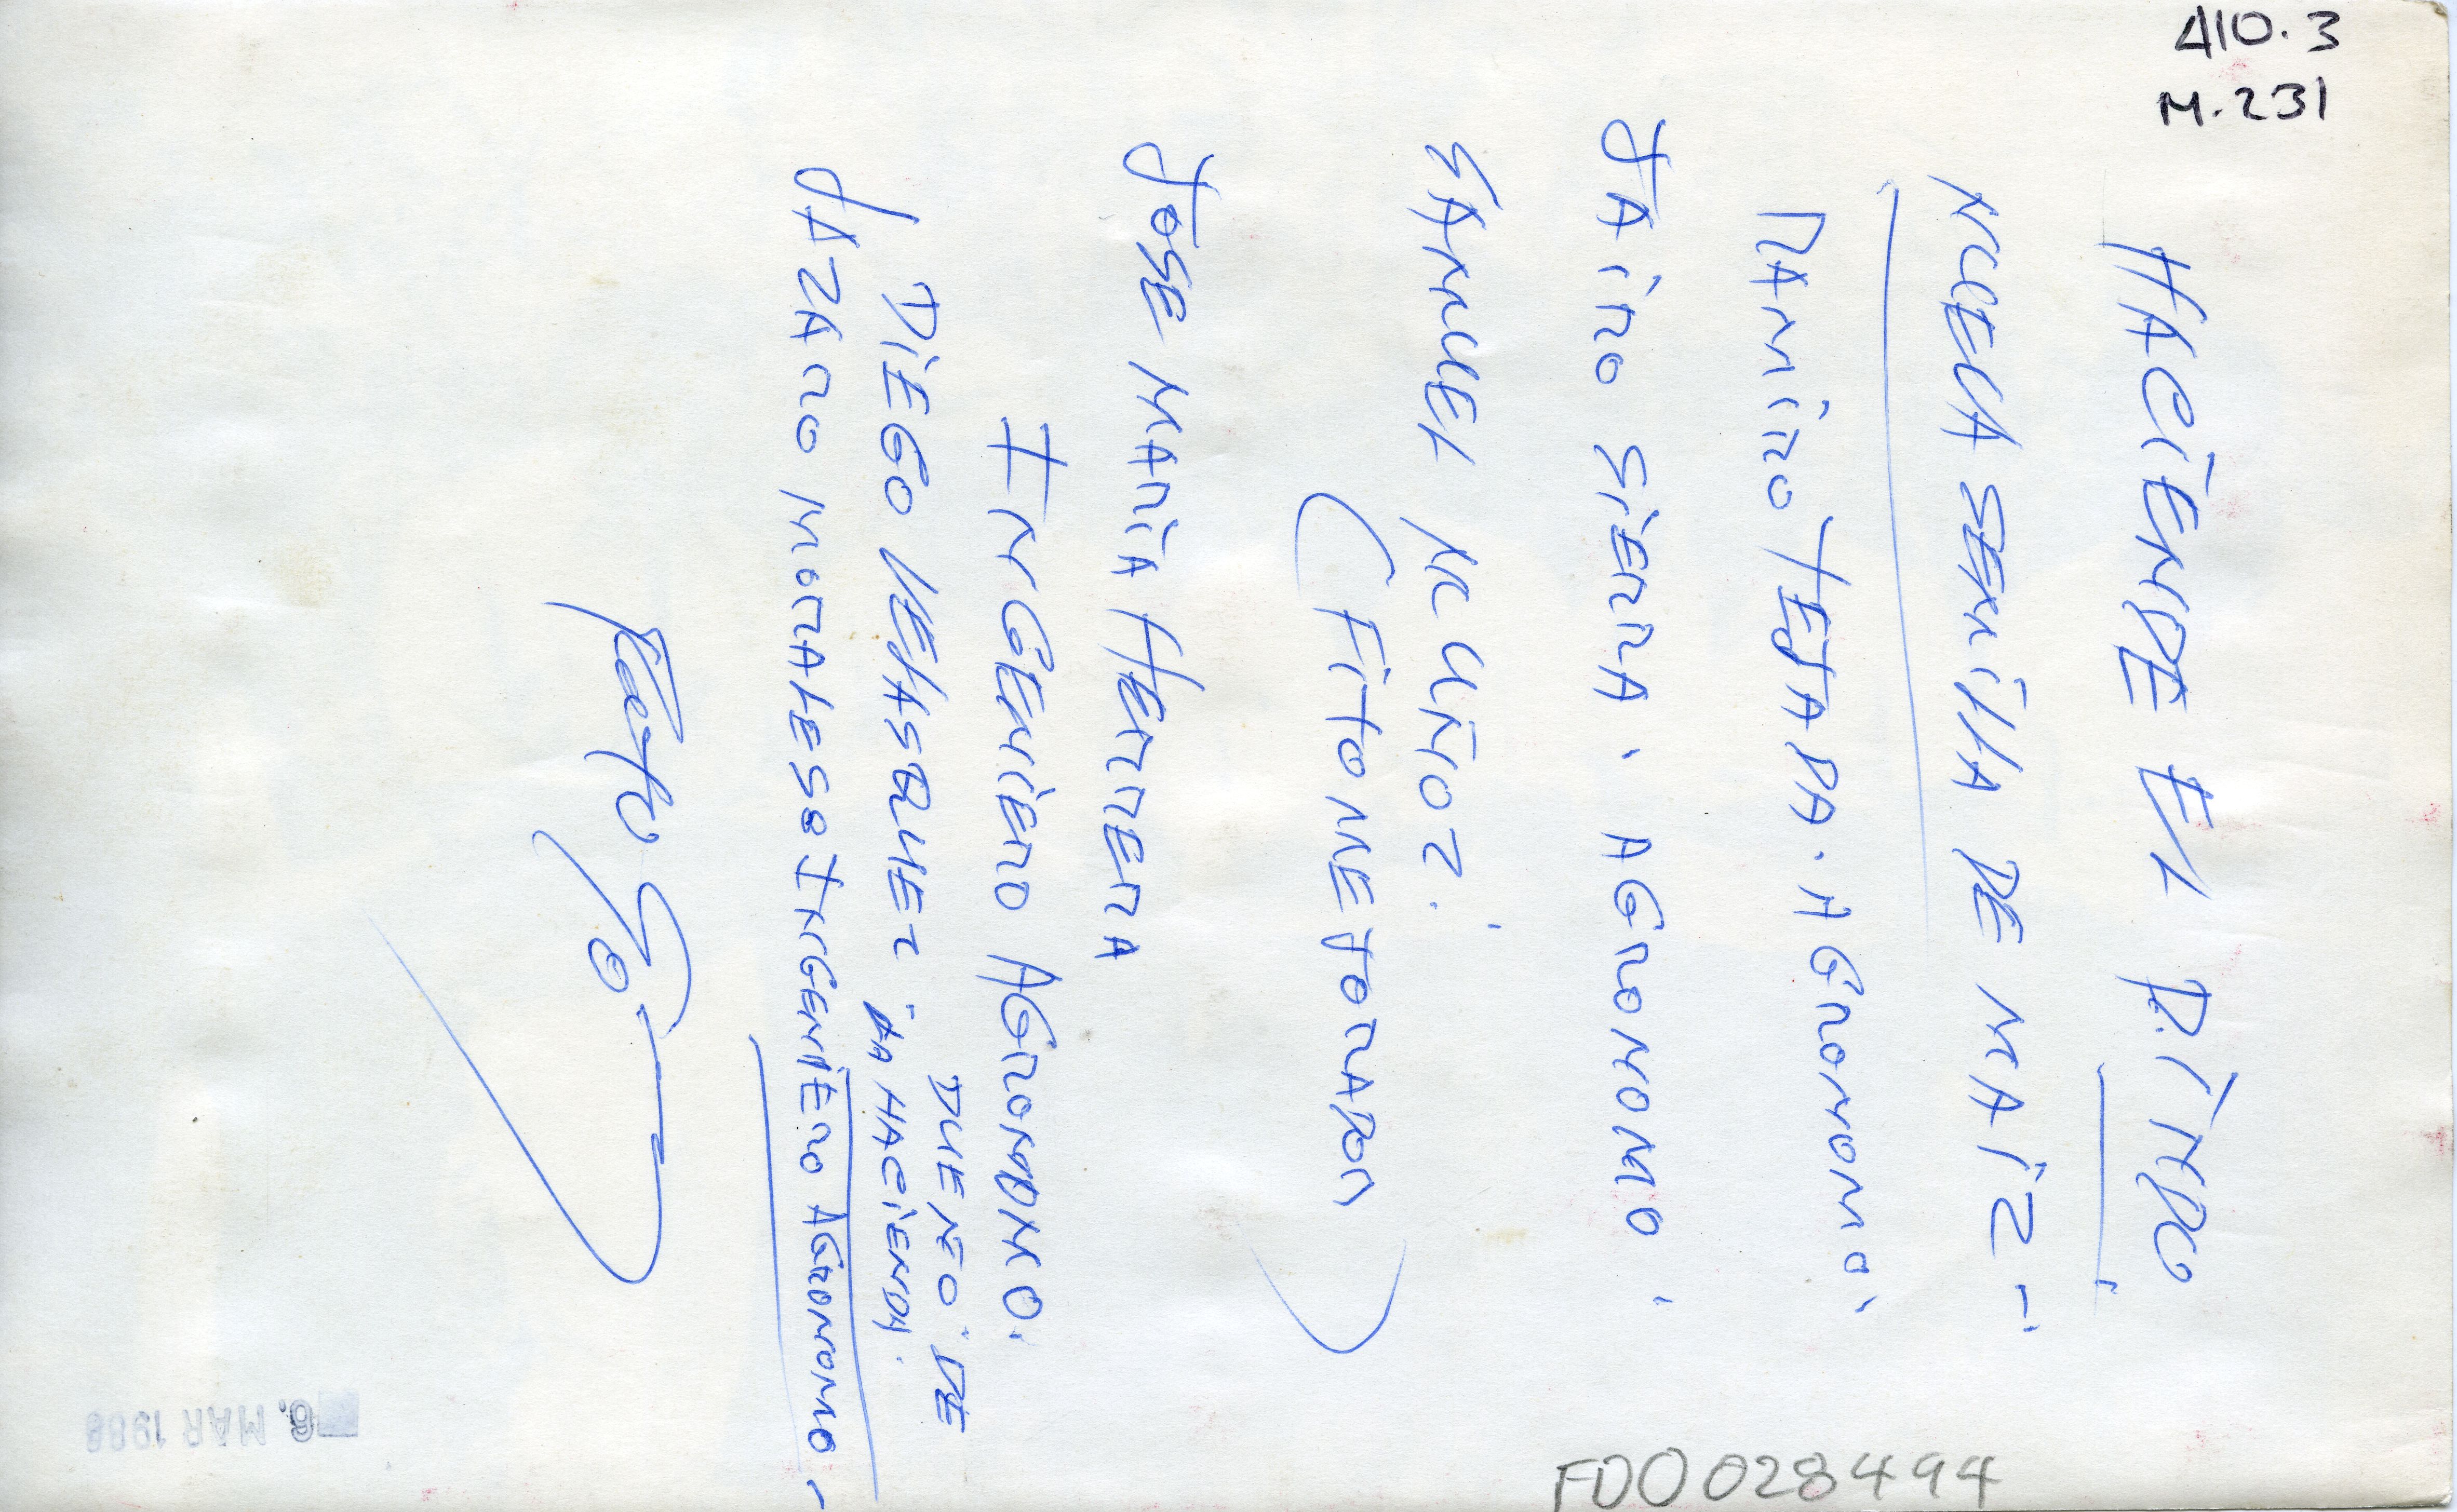 410.3
M.231
HACIENDE EL RiTMO
NUEVA SEMiLLA DE MAiZ -
RAMiRO TEJADA. AGRONOMO.
JAiRO SiERRA. AGRONOMO.
SAMUEL MUÑOZ.
(FiTOMEJORADOR)
JOSE MARiA HERRERA
INGENiERO AGRONOMO.
DiEGO VELASQUEZ DUEÑO DE
LA HACiENDA.
LAZARO MORALES INGENiERO AGRONOMO -
6. MAR 1988
FD0028494